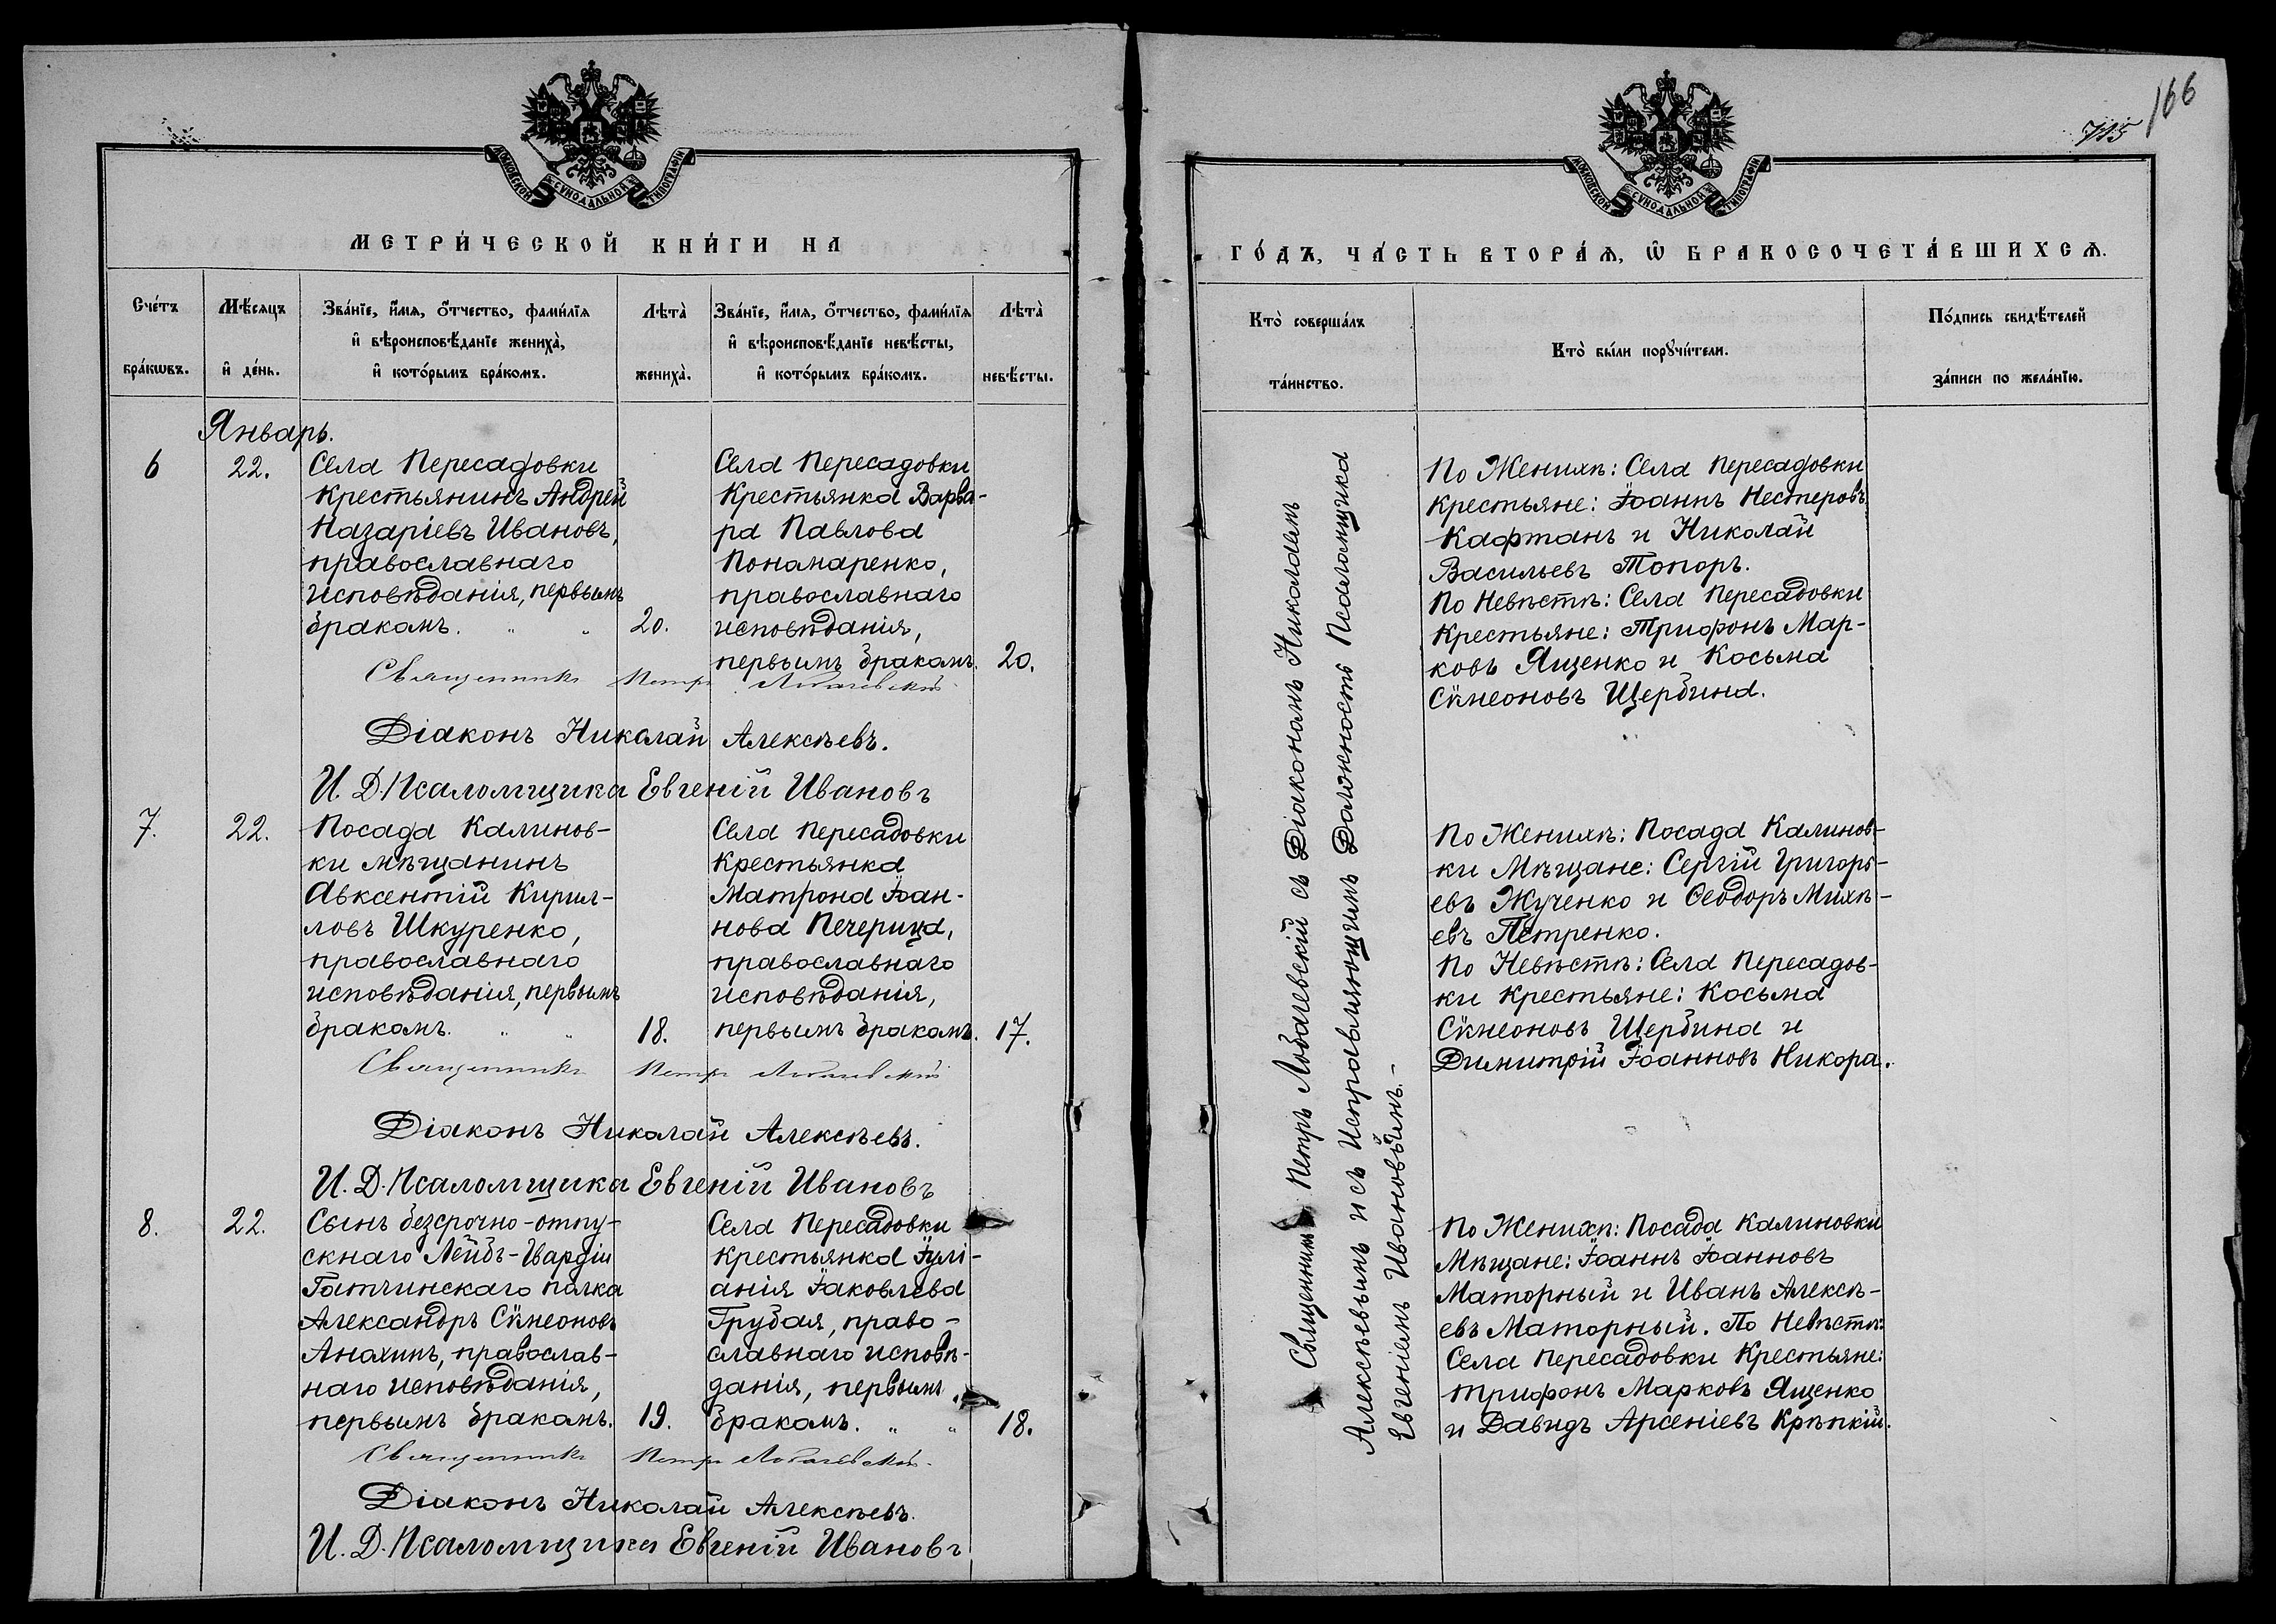 166
715
МОСКОВСКОЙ СѴНОДАЛЬНОЙ ТИПОГРАФІИ
МЕТРИ́ЧЕСКОЙ КНИ́ГИ НА
Сче́тъ бра́кѡвъ.
Мѣ́сяцъ и҆ де́нь.
Зва́нїе, и҆́мѧ, ѻ҆́тчество, фами́лїѧ
и҆ вѣроисповѣ́данїе жениха̀,
и҆ кото́рымъ бра́комъ.
Лѣта̀ жениха̀.
Зва́нїе, и҆́мѧ, ѻ҆́тчество, фами́лїѧ
и҆ вѣроисповѣ́данїе невѣ́сты,
и҆ кото́рымъ бра́комъ.
Лѣта̀ невѣ́сты.
Январь.
6
22.
Села Пересадовки
Крестьянинъ Андрей
Назаріевъ Ивановъ,
православнаго
исповѣданія, первымъ
бракомъ. " "
20.
Села Пересадовки
Крестьянка Варва-
ра Павлова
Пономаренко,
православнаго
исповѣданія,
первымъ бракомъ.
20.
Священникъ Петръ Лобачевскій
Діаконъ Николай Алексѣевъ.
И. Д. Псаломщика Евгеній Ивановъ
7.
22.
Посада Калинов-
ки мѣщанинъ
Авксентій Кирил-
ловъ Шкуренко,
православнаго
исповѣданія, первымъ
бракомъ. " "
18.
Села Пересадовки
Крестьянка
Матрона Іоан-
нова Печерица,
православнаго
исповѣданія,
первымъ бракомъ.
17.
Священникъ Петръ Лобачевскій
Діаконъ Николай Алексѣевъ.
И. Д. Псаломщика Евгеній Ивановъ
8.
22.
Сынъ безсрочно-отпу-
скнаго Лейбъ-Гвардіи
Гатчинскаго полка
Александръ Сѵмеоновъ
Анохинъ, православ-
наго исповѣданія,
первымъ бракомъ.
19.
Села Пересадовки
Крестьянка Іулі-
анія Іаковлева
Грубая, право-
славнаго исповѣ-
данія, первымъ
бракомъ. " "
18.
Священникъ Петръ Лобачевскій.
Діаконъ Николай Алексѣевъ.
И. Д. Псаломщика Евгеній Ивановъ
МОСКОВСКОЙ СѴНОДАЛЬНОЙ ТИПОГРАФІИ
ГО́ДЪ, ЧА́СТЬ ВТОРА́Ѧ, Ѡ҆ БРАКОСОЧЕТА́ВШИХСѦ.
Кто̀ соверша́лъ
та́инство.
Кто̀ бы́ли порꙋчи́тели.
По́дпись свидѣ́телей
за́писи по жела́нїю.
Священникъ Петръ Лобачевскій съ Діакономъ Николаемъ
Алексѣевымъ и съ Исправляющимъ Должность Псаломщика
Евгеніемъ Ивановымъ.-
По Женихѣ: Села Пересадовки
Крестьяне: Іоаннъ Нестеровъ
Кафтанъ и Николай
Васильевъ Топоръ.
По Невѣстѣ: Села Пересадовки
Крестьяне: Трифонъ Мар-
ковъ Ященко и Косьма
Сѵмеоновъ Щербина.
По Женихѣ: Посада Калинов-
ки Мѣщане: Сергій Григорь-
евъ Жученко и Ѳеодоръ Михѣ-
евъ Петренко.
По Невѣстѣ: Села Пересадов-
ки Крестьяне: Косьма
Сѵмеоновъ Щербина и
Димитрій Іоанновъ Никора.
По Женихѣ: Посада Калиновки
Мѣщане: Іоаннъ Іоанновъ
Маторный и Иванъ Алексѣ-
евъ Маторный. По Невѣстѣ:
Села Пересадовки Крестьяне:
Трифонъ Марковъ Ященко
и Давидъ Арсеніевъ Крѣпкій.